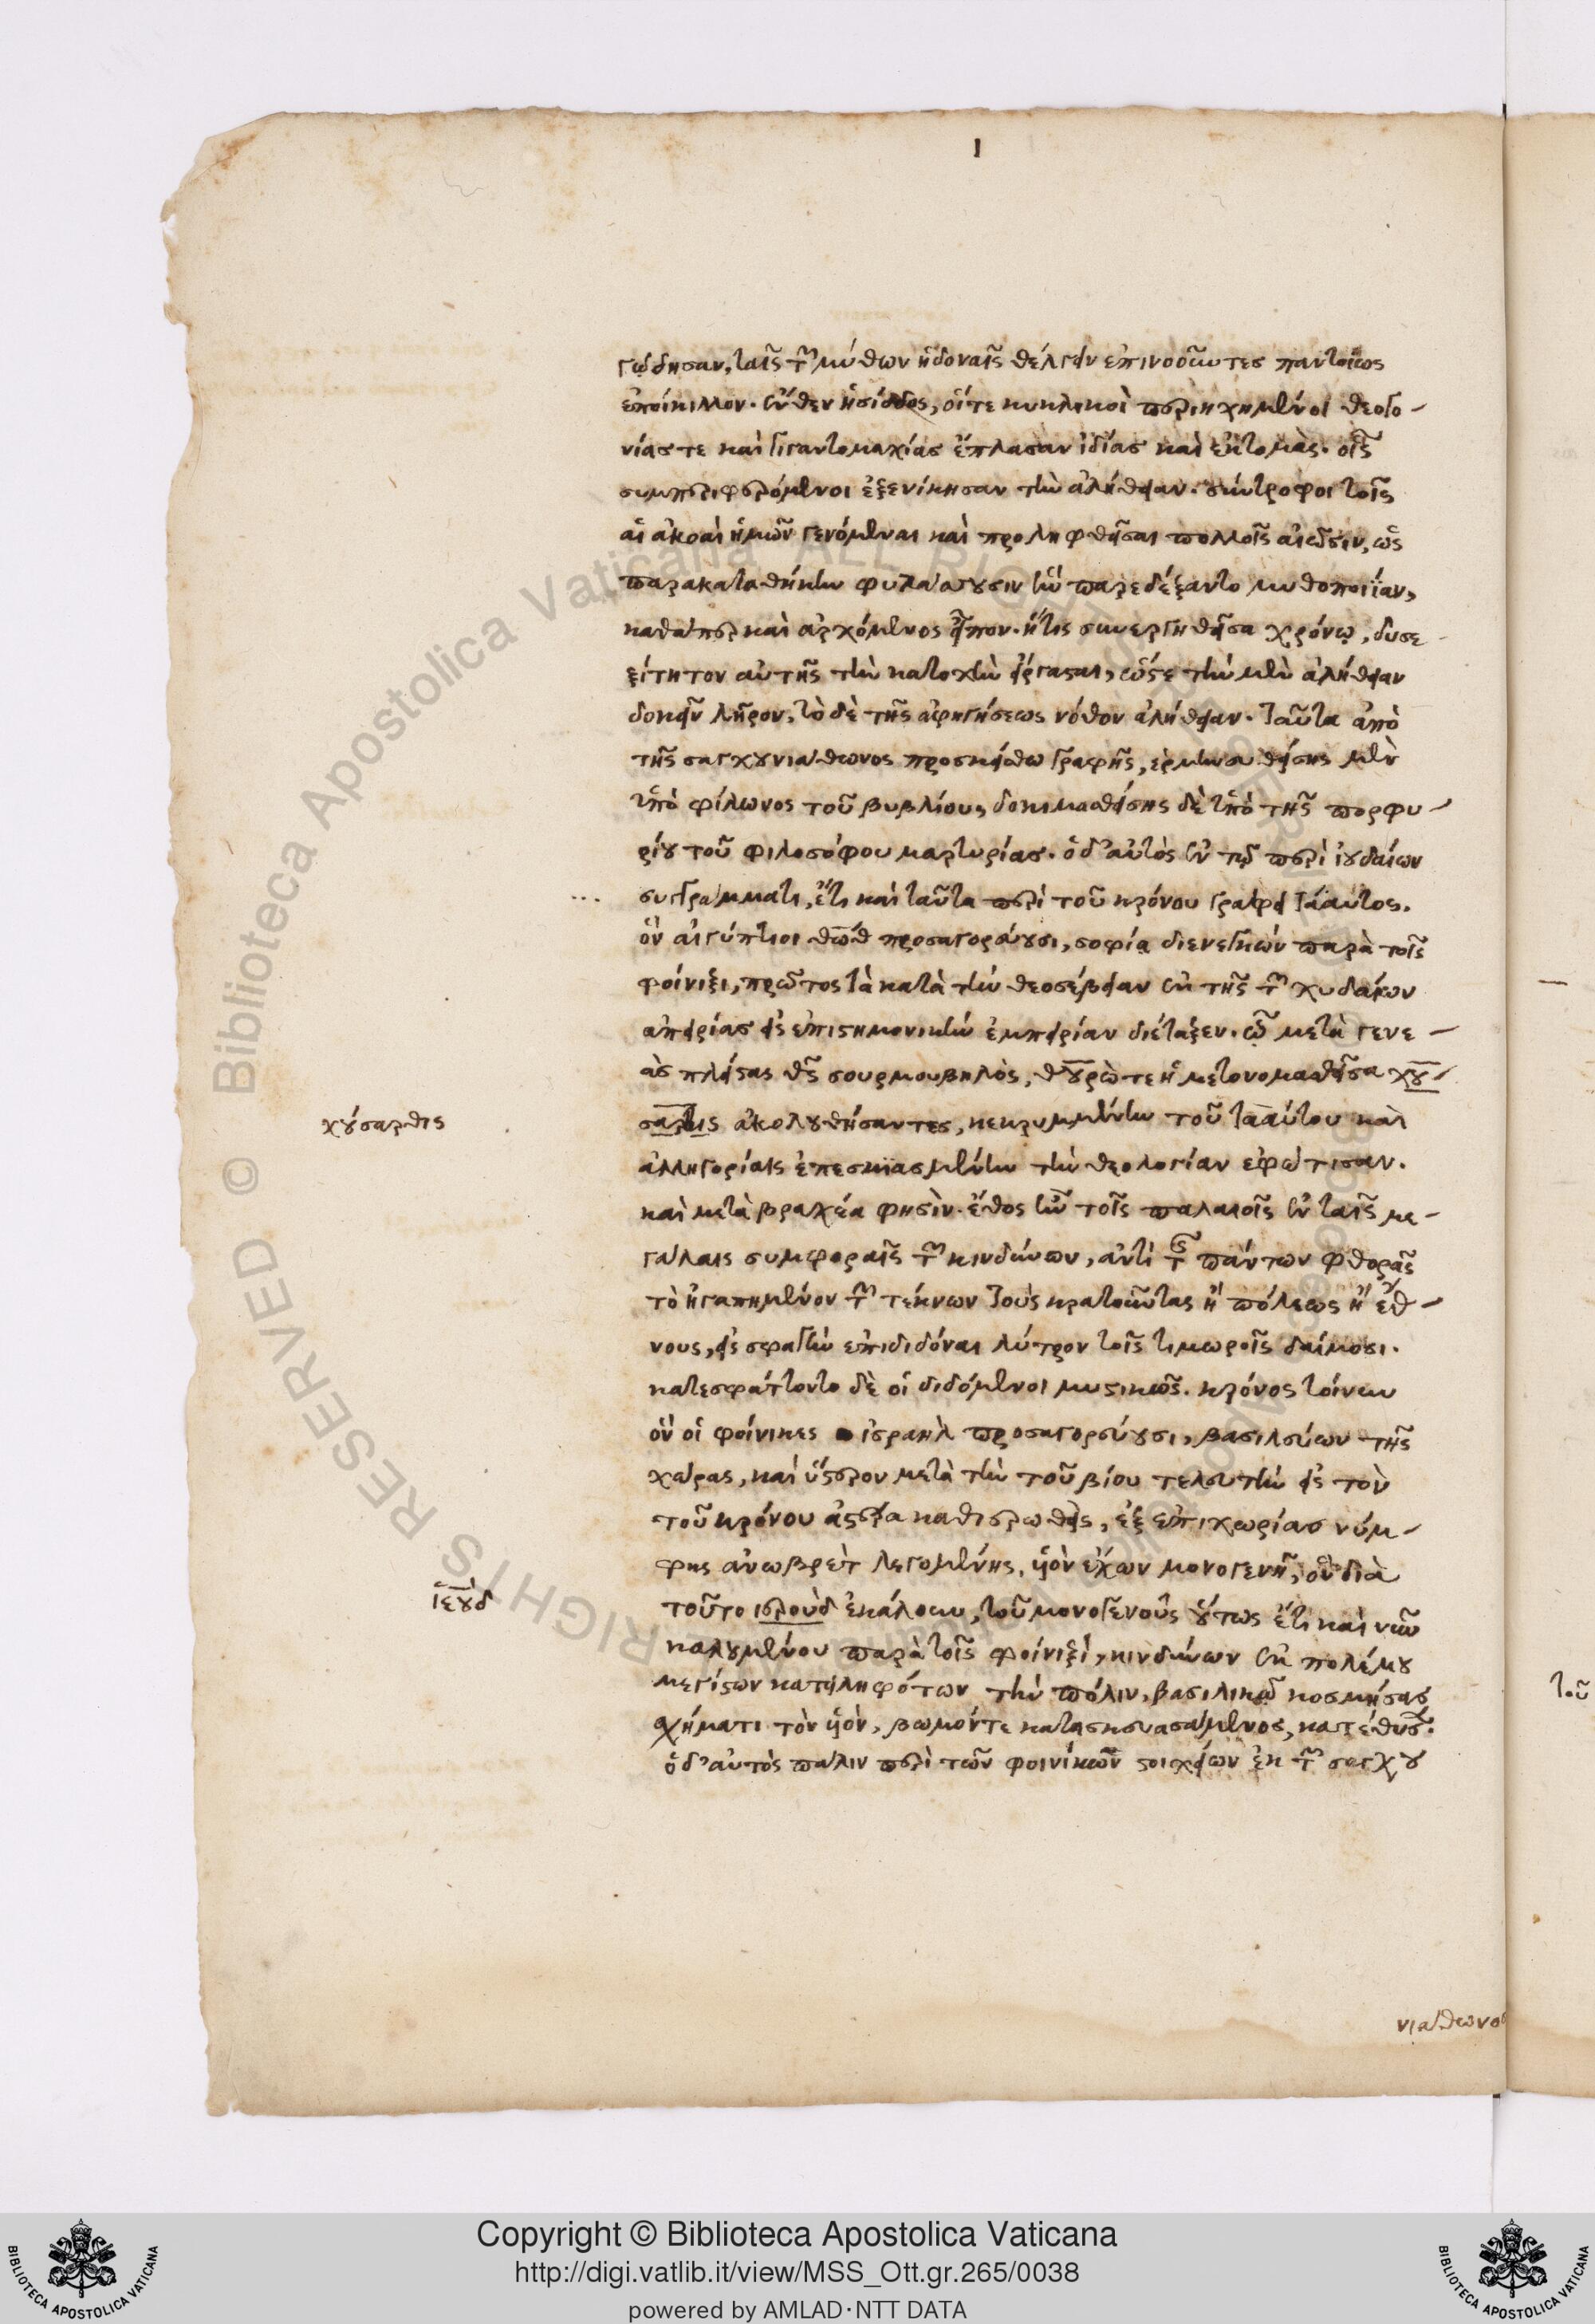 Ι
γῴδησαν, ταῖς τῶν μύθων ἡδοναῖς θέλγειν ἐπινοοῦντες παντοίως
ἐποίκιλλον. ἔνθεν ἡσίοδος, οἵτε κυκλικοὶ περιηχημένοι θεογο-
νίας τε καὶ γιγαντομαχίας ἔπλασαν ἰδίας καὶ ἐκτομάς. οἷς
συμπεριφερόμενοι ἐξενίκησαν τὴν ἀλήθειαν. σύντροφοι τοῖς
αἱ ἀκοαὶ ἡμῶν γενόμεναι καὶ προληφθεῖσαι πολλοῖς αἰῶσιν, ὡς
παρακαταθήκην φυλάσσουσιν ἣν παρεδέξαντο μυθοποιΐαν,
καθάπερ καὶ ἀρχόμενος εἶπον. ἥτις συνεργηθεῖσα χρόνῳ, δυσε
ξίτητον αὐτῆς τὴν κατοχὴν εἴργασαι, ὥστε τὴν μὲν ἀλήθειαν
δοκεῖν λῆρον, τὸ δὲ τῆς ἀφηγήσεως νόθον ἀλήθειαν. ταῦτα ἀπὸ
τῆς σαγχουνιάθωνος προσκείσθω γραφῆς, ἑρμηνευθείσης μὲν
ὑπὸ φίλωνος τοῦ βυβλίου, δοκιμασθείσης δὲ ὑπὸ τῆς πορφυ-
ρίου τοῦ φιλοσόφου μαρτυρίας. ὁ δ' αὐτὸς ἐν τῷ περὶ ἰουδαίων
συγγράμματι, ἔτι καὶ ταῦτα περὶ τοῦ κρόνου γράφει τάαυτος.
ὃν αἰγύπτιοι θωὺθ προσαγορεύουσι, σοφίᾳ διενεγκών παρὰ τοῖς
φοίνιξι, πρῶτος τὰ κατὰ τὴν θεοσέβειαν ἐκ τῆς τῶν χυδαίων
ἀπειρίας εἰς ἐπιστημονικὴν ἐμπειρίαν διέταξεν. ᾧ μετὰ γενε-
ὰς πλείστας θεὸς σουρμουβηλὸς, θουρώ τε ἡ μετονομασθεῖσα χου-
σαρθις ἀκολουθήσαντες, κεκρυμμένην τοῦ τααύτου καὶ
ἀλληγορίαις ἐπεσκιασμένην τὴν θεολογίαν ἐφώτισαν.
καὶ μετὰ βραχέα φησὶν. ἔθος ἦν τοῖς παλαιοῖς ἐν ταῖς με-
γάλαις συμφοραῖς τῶν κινδύνων, ἀντὶ τῆς πάντων φθορᾶς
τὸ ἠγαπημένον τῶν τέκνων τοὺς κρατοῦντας ἢ πόλεως ἢ ἔθ-
νους, εἰς σφαγὴν ἐπιδιδόναι λύτρον τοῖς τιμωροῖς δαίμοσι.
κατεσφάττοντο δὲ οἱ διδόμενοι μυστικῶς. κρόνος τοίνυν
ὃν οἱ φοίνικες ἰσραὴλ προσαγορεύουσι, βασιλεύων τῆς
χώρας, καὶ ὕστερον μετὰ τὴν τοῦ βίου τελευτὴν εἰς τὸν
τοῦ κρόνου ἀστέρα καθιερωθεὶς, ἐξ ἐπιχωρίας νύμ-
φης ἀνωβρὲτ λεγομένης, υἱὸν ἔχων μονογενῆ, ὃν διὰ
τοῦτο ιερουδ ἐκάλουν, τοῦ μονογενοῦς οὕτως ἔτι καὶ νῦν
καλουμένου παρὰ τοῖς φοίνιξι, κινδύνων ἐκ πολέμου
μεγίστων κατειληφότων τὴν πόλιν, βασιλικῷ κοσμήσας
σχήματι τὸν υἱὸν, βωμόν τε κατασκευασάμενος, κατέθυσε.
ὁ δ' αὐτὸς πάλιν περὶ τῶν φοινίκων στοιχείων ἐκ τῶν σαγχου
χούσαρθις
ἰεοὺδ
νιάθωνος
τοῦ
Copyright © Biblioteca Apostolica Vaticana
http://digi.vatlib.it/view/MSS_Ott.gr.265/0038
powered by AMLAD·NTT DATA
BIBLIOTECA APOSTOLICA VATICANA
BIBLIOTECA APOSTOLICA VATICANA